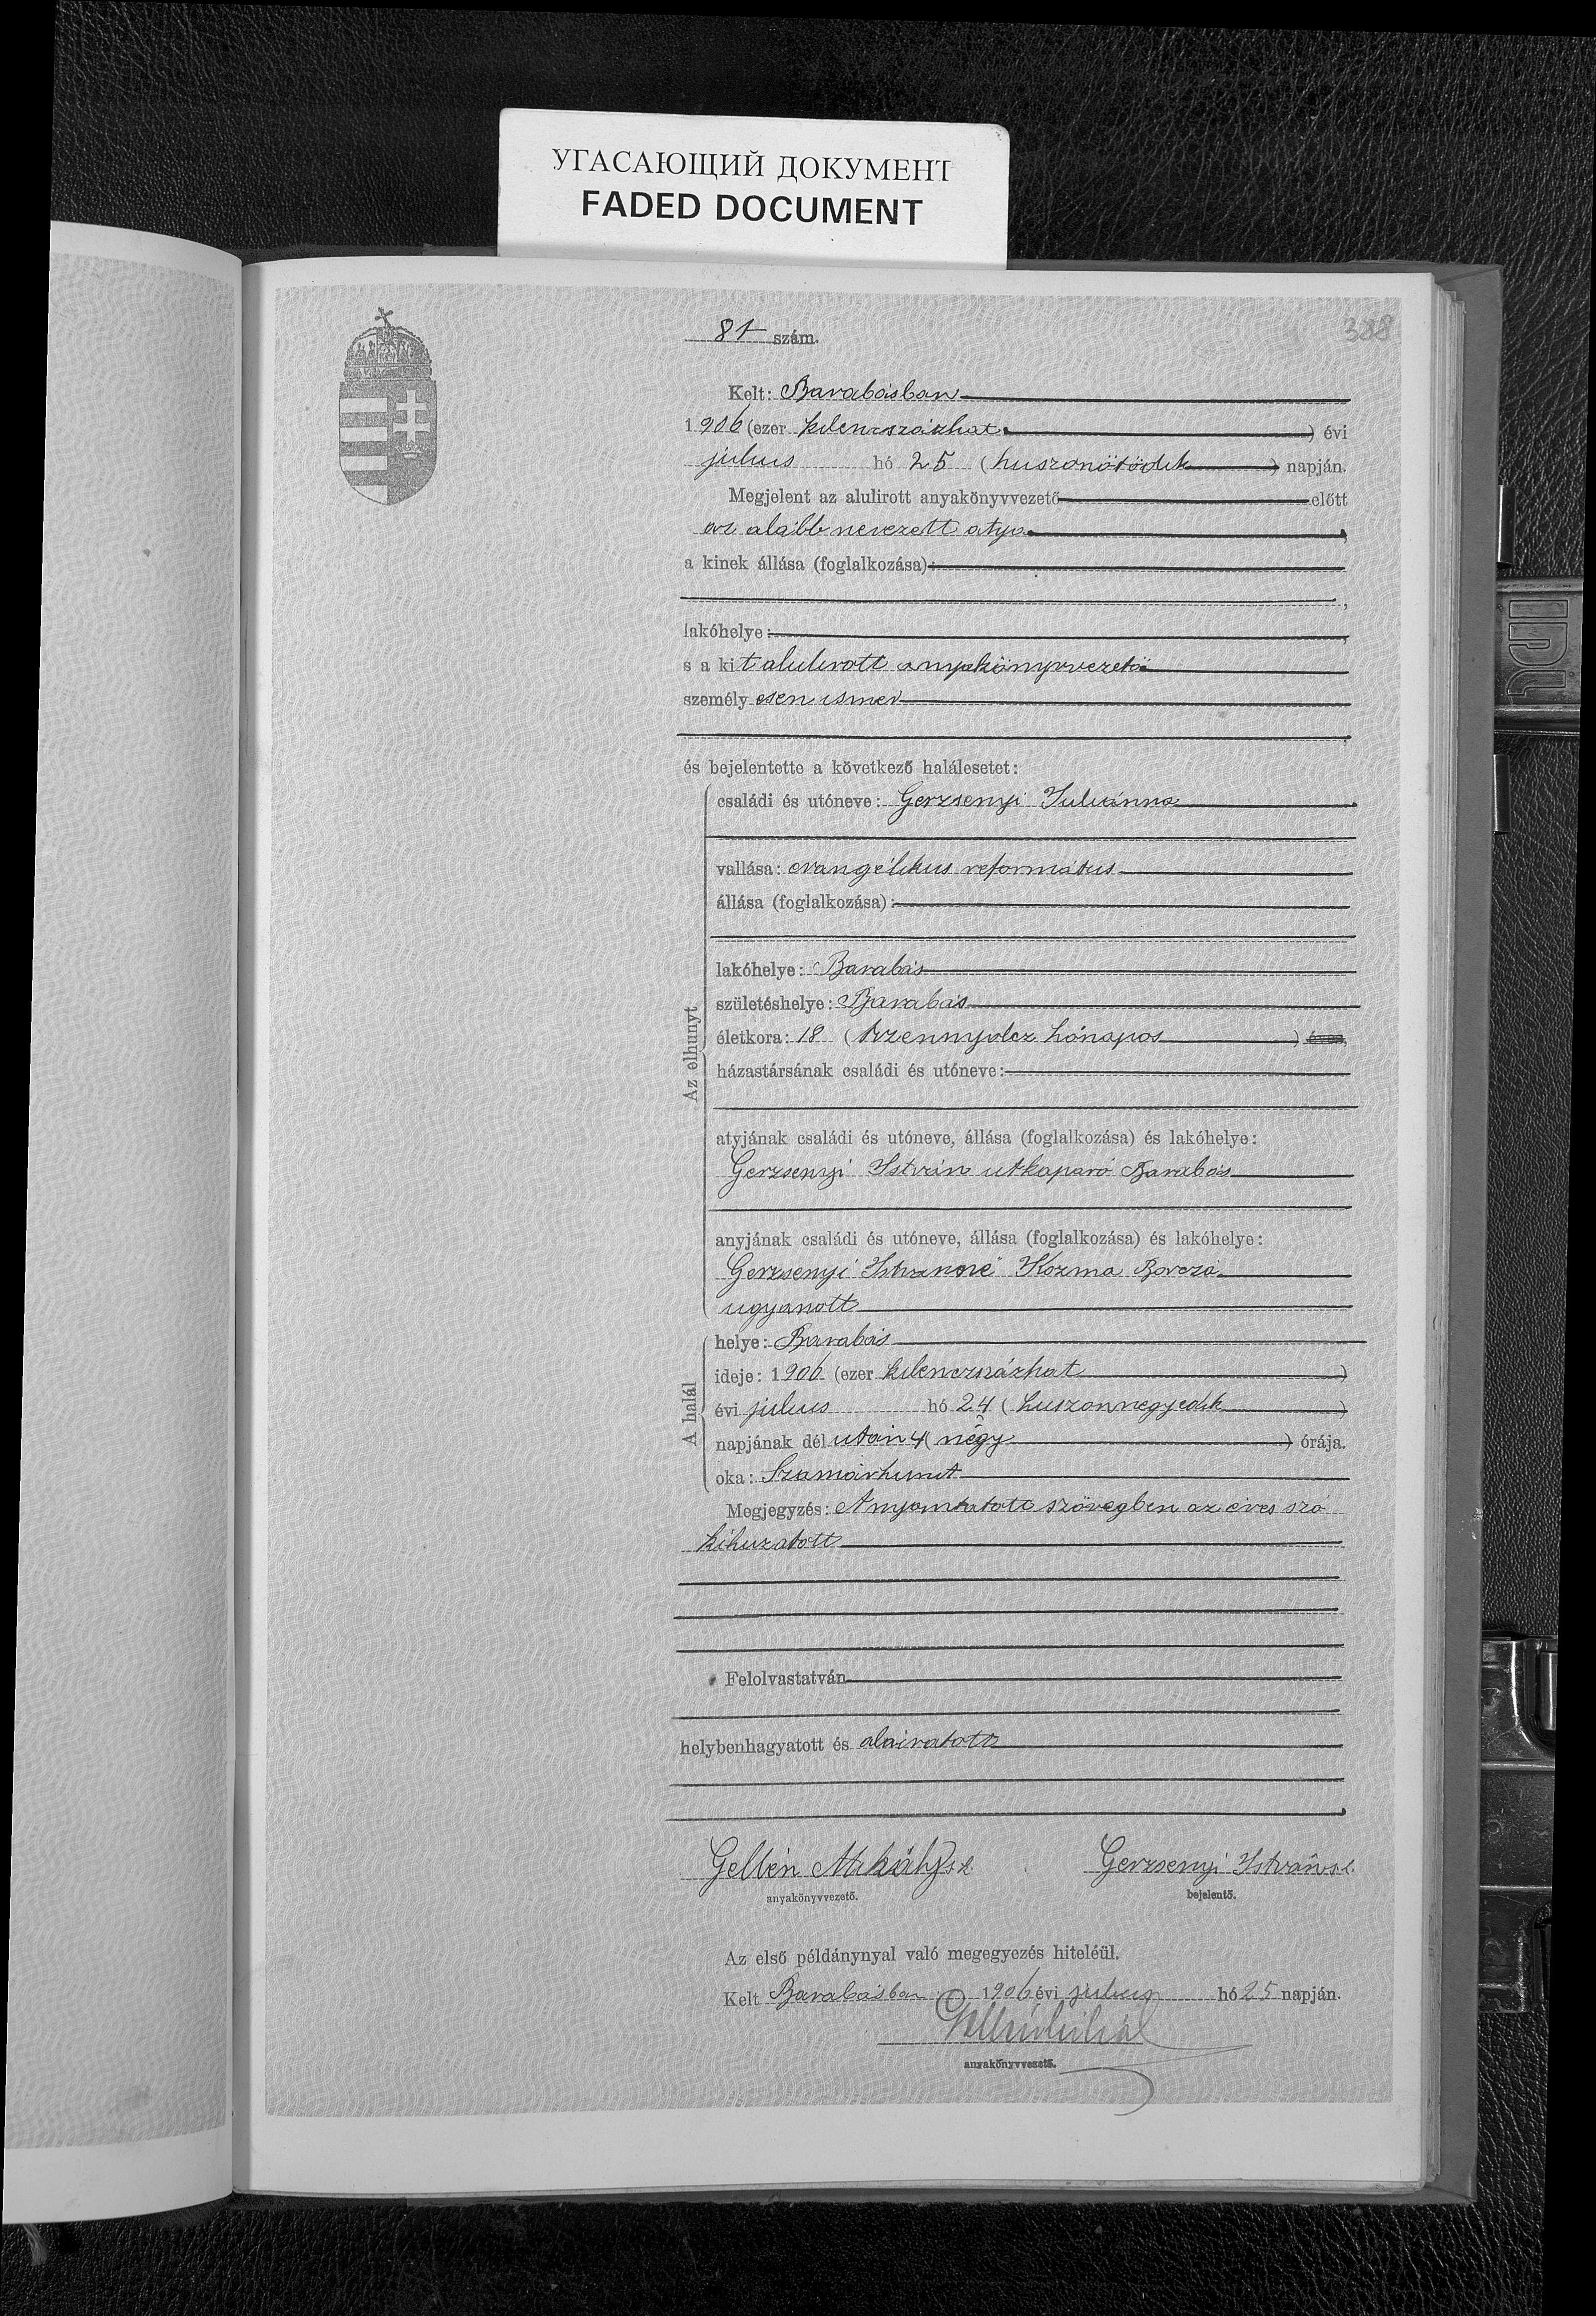 УГАСАЮЩИЙ ДОКУМЕНТ
FADED DOCUMENT
388
81 szám.
Kelt: Barabásban
1906 (ezer kilenczszázhat) évi
julius hó 25 (huszonötödik) napján.
Megjelent az alulirott anyakönyvvezető előtt
az alább nevezett atya,
a kinek állása (foglalkozása):
,
lakóhelye:
s a kit alulirott anyakönyvvezető
személyesen ismer
,
és bejelentette a következő halálesetet:
Az elhunyt
családi és utóneve: Gerzsenyi Juliánna
vallása: evangélikus református
állása (foglalkozása):
lakóhelye: Barabás
születéshelye: Barabás
életkora: 18 (tizennyolcz hónapos) éves,
házastársának családi és utóneve:
atyjának családi és utóneve, állása (foglalkozása) és lakóhelye:
Gerzsenyi István utkaparó Barabás
anyjának családi és utóneve, állása (foglalkozása) és lakóhelye:
Gerzsenyi Istvánné Kozma
ugyanott
A halál
helye: Barabás
ideje: 1906 (ezer kilenczszázhat)
évi julius hó 24 (huszonnegyedik)
napjának dél után 4 (négy) órája.
oka: Szamárhurut
Megjegyzés: A nyomtatott szövegben az éves szó
kihuzatott
Felolvastatván
helybenhagyatott és aláiratott
Gellén Mihály s.k. Gerzsenyi István s.k.
anyakönyvvezető. bejelentő.
Az első példánynyal való megegyezés hiteléül.
Kelt Barabásban 1906 évi julius hó 25 napján.
Gellén Mihály
anyakönyvvezető.